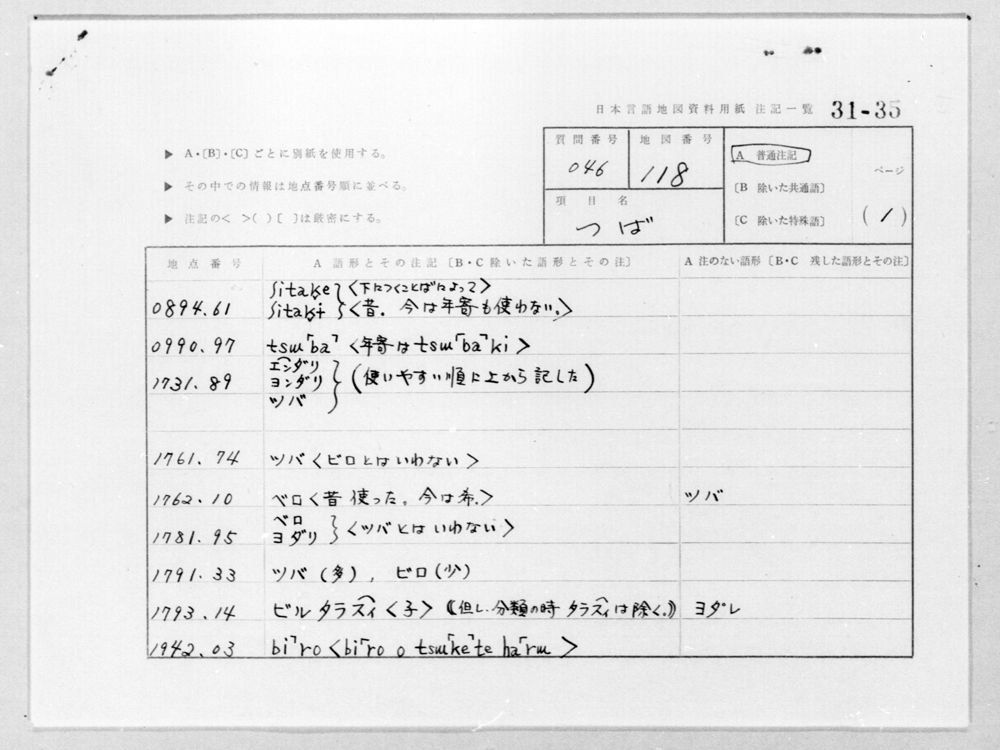 日本言語地図資料用紙 注記一覧 31-35
▶ A・〔B〕・〔C〕ごとに別紙を使用する。
▶ その中での情報は地点番号順に並べる。
▶ 注記の< >( )[ ]は厳密にする。
質問番号 地図番号
046 118
項目名
つば
A 普通注記
〔B 除いた共通語〕
〔C 除いた特殊語〕
ページ
(1)
地点番号 A 語形とその注記〔B・C除いた語形とその注〕 A 注のない語形〔B・C 残した語形とその注〕
0894.61 ʃitake ʃitaki } <下につくことばによって> <昔.今は年寄も使わない.>
0990.97 tsɯ「ba」 <年寄はtsɯ「ba」ki>
1731.89 エンダリ
ヨンダリ
ツバ } (使いやすい順に上から記した)
1761.74 ツバ<ビロとはいわない>
1762.10 ベロ<昔使った。今は希.> ツバ
1781.95 ベロ
ヨダリ } <ツバとはいわない>
1791.33 ツバ(多), ビロ(少)
1793.14 ビル タラズィ<子>《但し.分類の時 タラズィは除く。》 ヨダレ
1942.03 bi「ro <bi「ro o tsɯ「ke」te ha「rɯ>